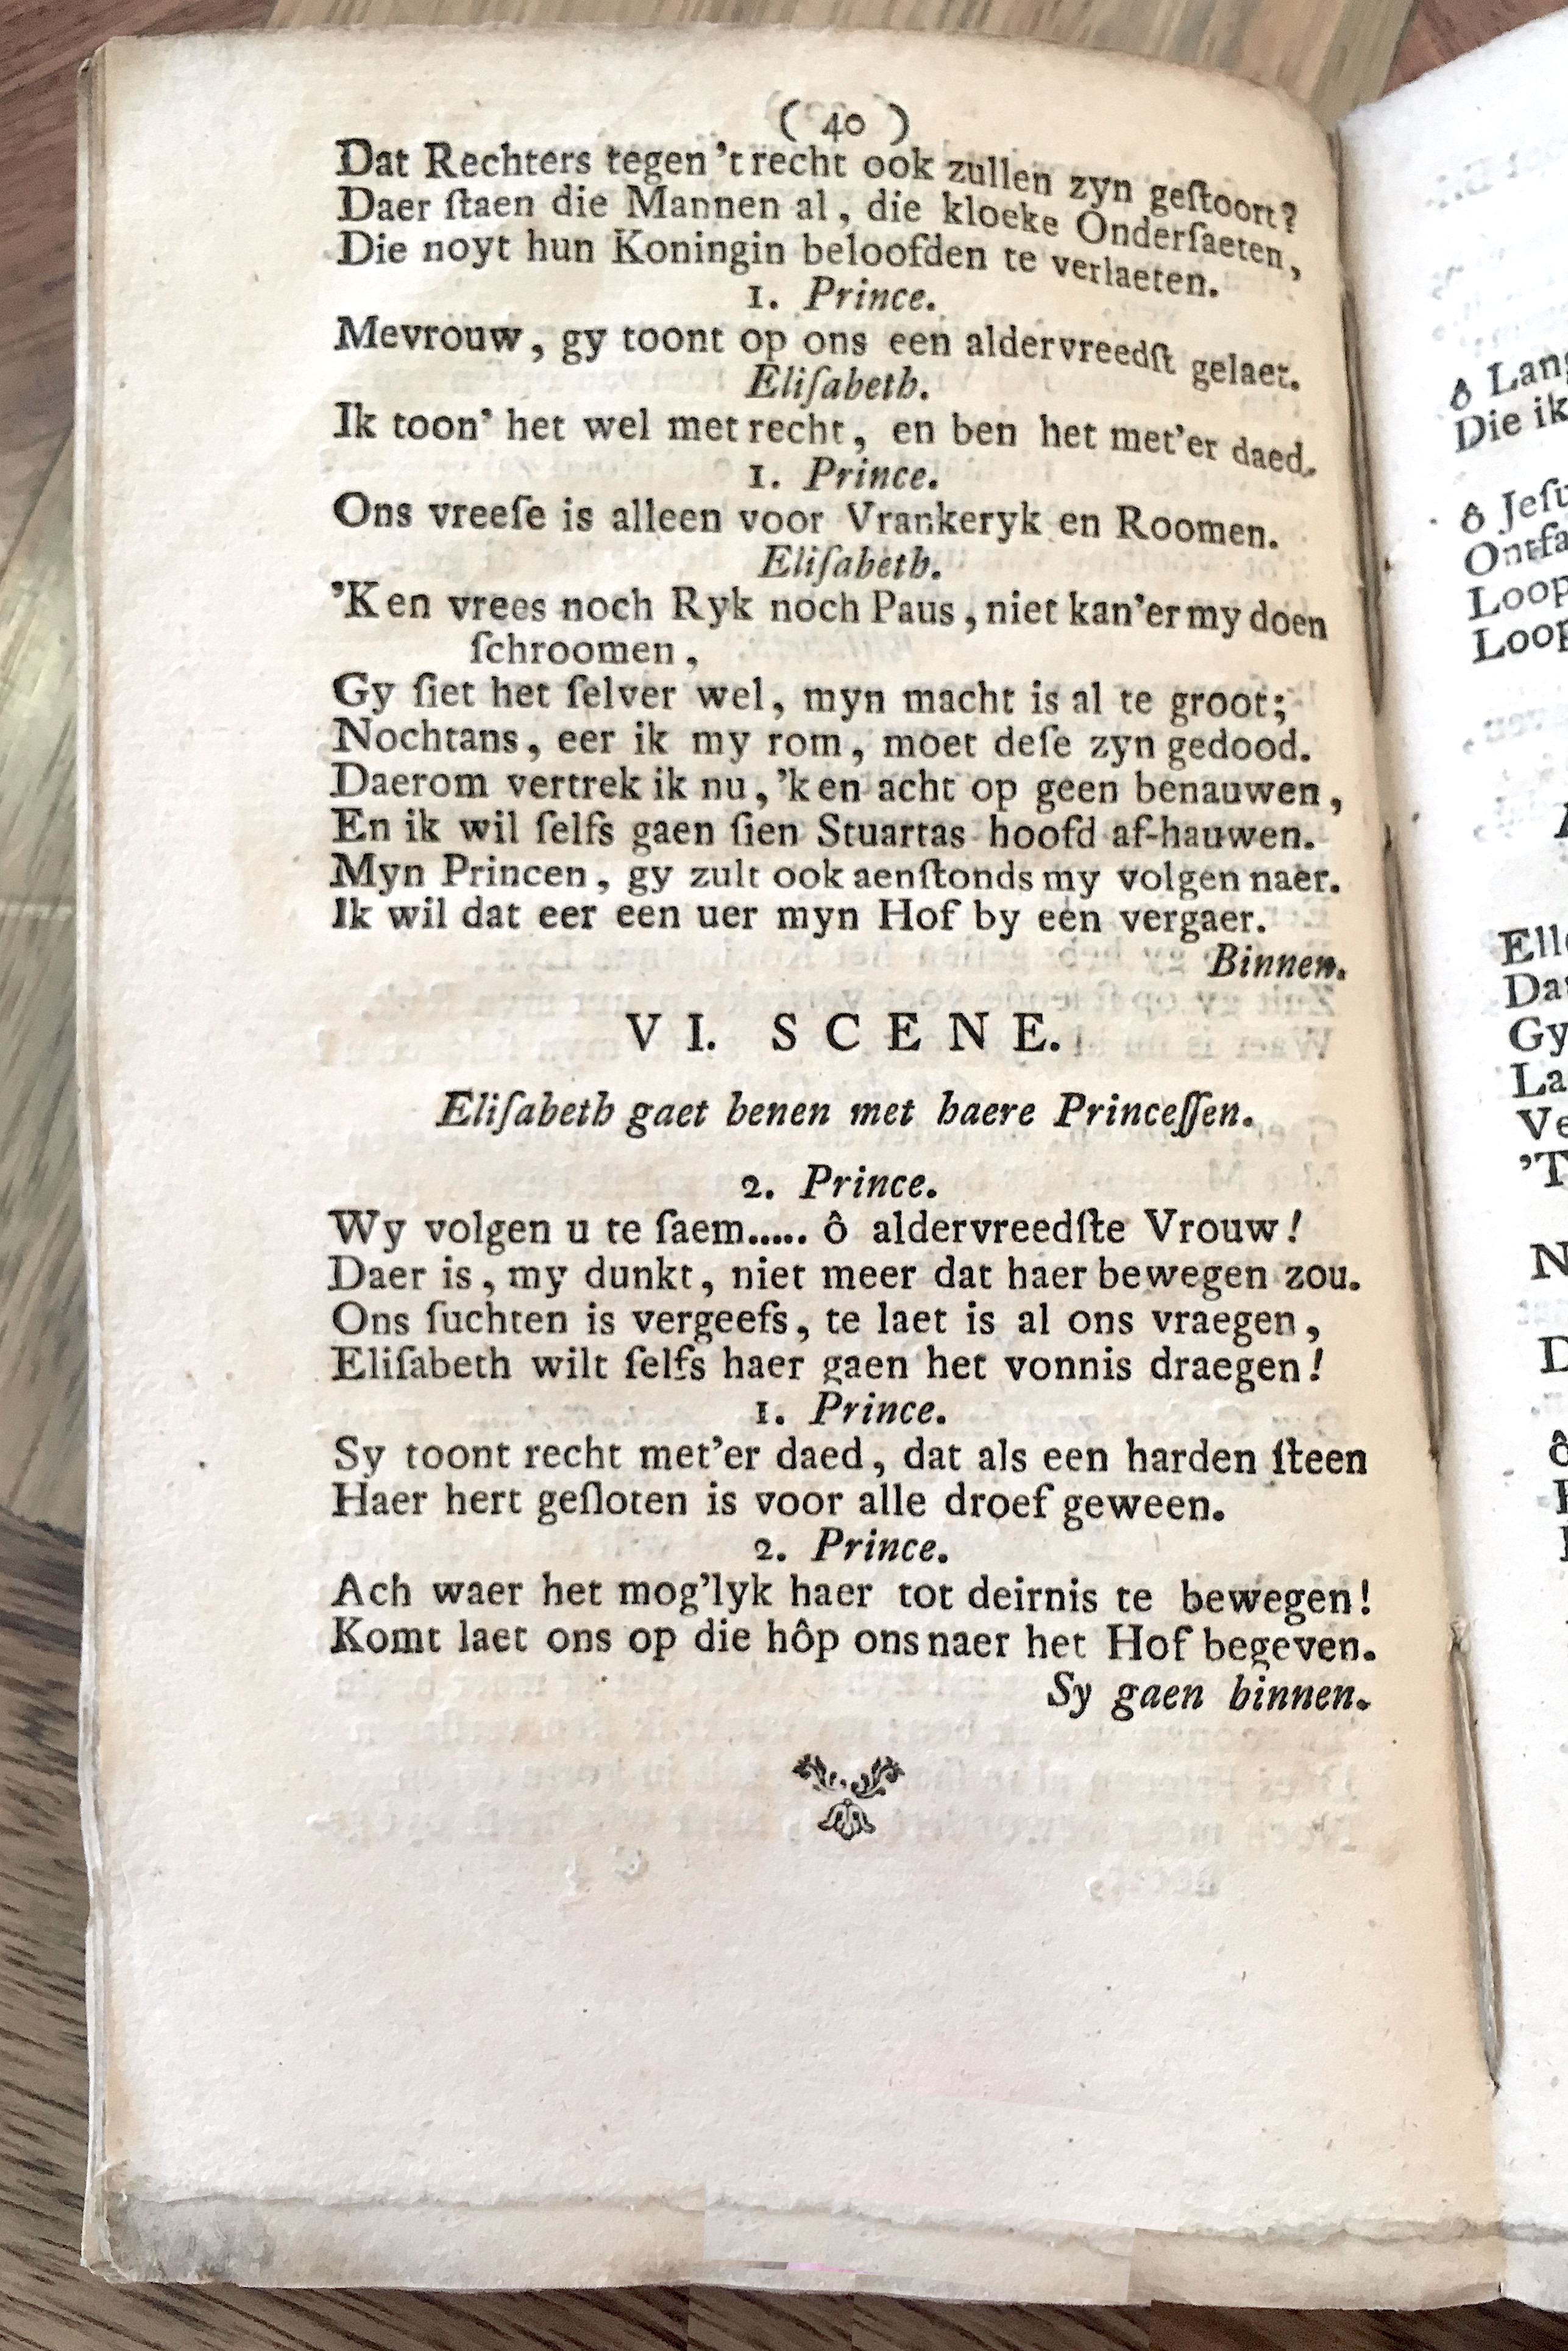 ( 40 )
Dat Rechters tegen 't recht ook zullen zyn geſtoort?
Daer ſtaen die Mannen al, die kloeke Onderſaeten,
Die noyt hun Koningin beloofden te verlaeten.
1. Prince.
Mevrouw, gy toont op ons een aldervreedſt gelaet.
Eliſabeth.
Ik toon' het wel met recht, en ben het met'er daed.
1. Prince.
Ons vreeſe is alleen voor Vrankeryk en Roomen.
Eliſabeth.
'K en vrees noch Ryk noch Paus, niet kan'er my doen
ſchroomen,
Gy ſiet het ſelver wel, myn macht is al te groot;
Nochtans, eer ik my rom, moet deſe zyn gedood.
Daerom vertrek ik nu, 'k en acht op geen benauwen,
En ik wil ſelfs gaen ſien Stuartas hoofd af-hauwen.
Myn Princen, gy zult ook aenſtonds my volgen naer.
Ik wil dat eer een uer myn Hof by een vergaer.
Binnen.
VI. SCENE.
Eliſabeth gaet henen met haere Princeſſen.
2. Prince.
Wy volgen u te ſaem..... ô aldervreedſte Vrouw!
Daer is, my dunkt, niet meer dat haer bewegen zou.
Ons ſuchten is vergeefs, te laet is al ons vraegen,
Eliſabeth wilt ſelfs haer gaen het vonnis draegen!
1. Prince.
Sy toont recht met'er daed, dat als een harden ſteen
Haer hert geſloten is voor alle droef geween.
2. Prince.
Ach waer het mog'lyk haer tot deirnis te bewegen!
Komt laet ons op die hôp ons naer het Hof begeven.
Sy gaen binnen.
ô Lang
Die ik
ô Jeſu
Ontfa
Loop
Loop
Elle
Da
Gy
La
Ve
'T
N
D
ô